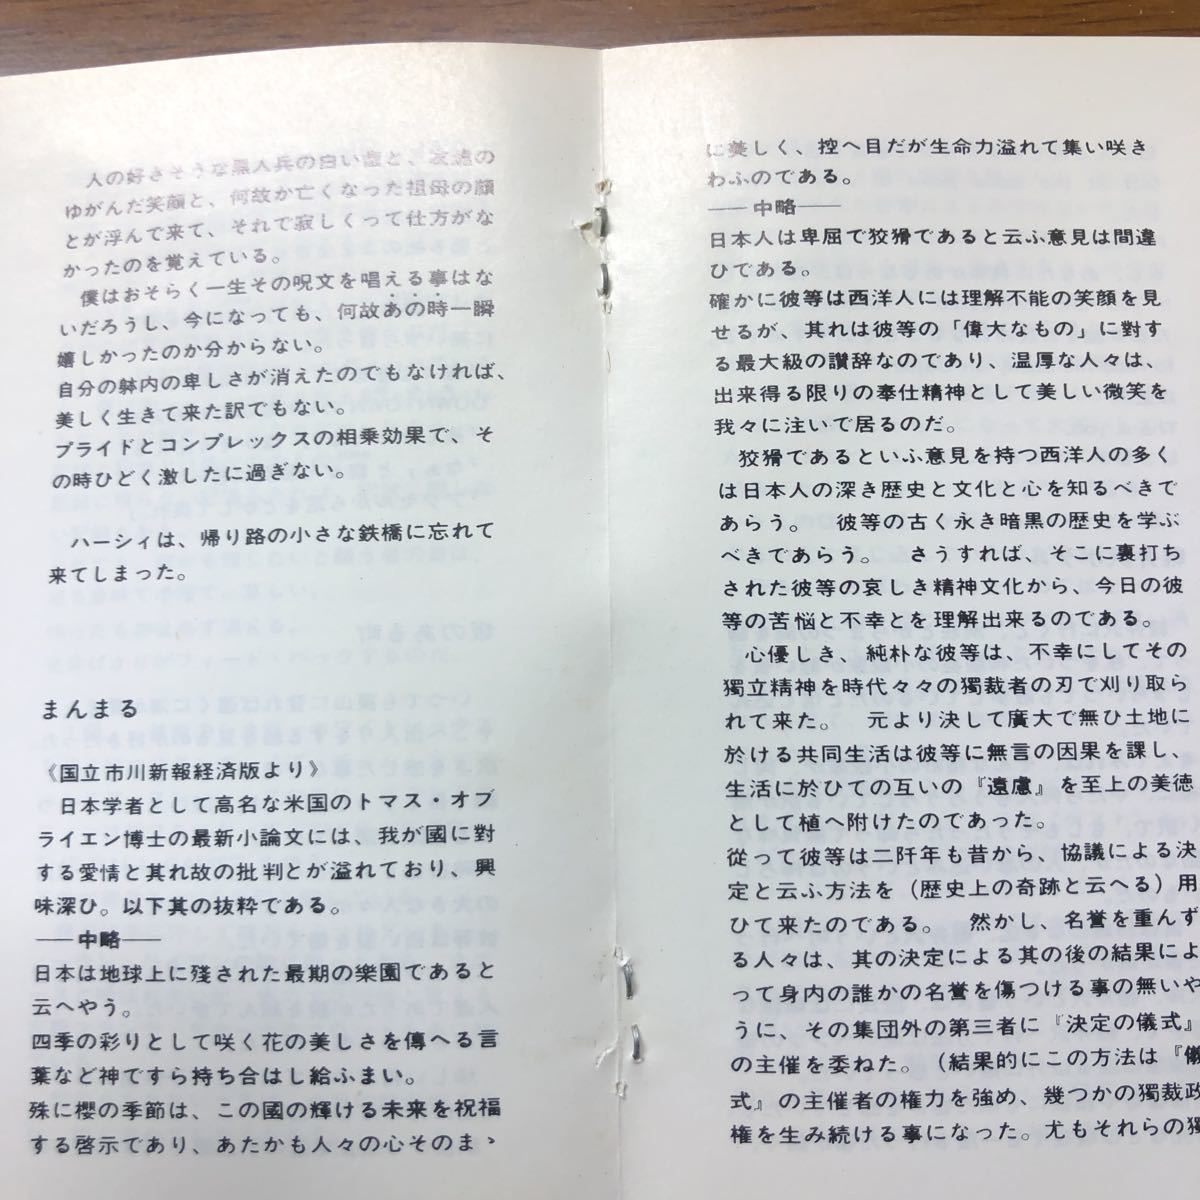 人の好さそうな黒人兵の白い歯と、友達の
ゆがんだ笑顔と、何故か亡くなった祖母の顔
とが浮んで来て、それで寂しくって仕方がな
かったのを覚えている。
僕はおそらく一生その呪文を唱える事はな
いだろうし、今になっても、何故あの時一瞬
嬉しかったのか分からない。
自分の躰内の卑しさが消えたのでもなければ、
美しく生きて来た訳でもない。
プライドとコンプレックスの相乗効果で、そ
の時ひどく激したに過ぎない。
ハーシィは、帰り路の小さな鉄橋に忘れて
来てしまった。
まんまる
《国立市川新報経済版より》
日本学者として高名な米国のトマス・オブ
ライエン博士の最新小論文には、我が國に對
する愛情と其れ故の批判とが溢れており、興
味深ひ。以下其の抜粋である。
──中略──
日本は地球上に殘された最期の樂園であると
云へやう。
四季の彩りとして咲く花の美しさを傳へる言
葉など神ですら持ち合はし給ふまい。
殊に櫻の季節は、この國の輝ける未来を祝福
する啓示であり、あたかも人々の心そのまゝ
に美しく、控へ目だが生命力溢れて集い咲き
わふのである。
──中略──
日本人は卑屈で狡猾であると云ふ意見は間違
ひである。
確かに彼等は西洋人には理解不能の笑顔を見
せるが、其れは彼等の「偉大なもの」に對す
る最大級の讃辞なのであり、温厚な人々は、
出来得る限りの奉仕精神として美しい微笑を
我々に注いで居るのだ。
狡猾であるといふ意見を持つ西洋人の多く
は日本人の深き歴史と文化と心を知るべきで
あらう。　彼等の古く永き暗黒の歴史を学ぶ
べきであらう。　さうすれば、そこに裏打ち
された彼等の哀しき精神文化から、今日の彼
等の苦悩と不幸とを理解出来るのである。
心優しき、純朴な彼等は、不幸にしてその
獨立精神を時代々々の獨裁者の刃で刈り取ら
れて来た。　元より決して廣大で無ひ土地に
於ける共同生活は彼等に無言の因果を課し、
生活に於ひての互いの『遠慮』を至上の美徳
として植へ附けたのであった。
從って彼等は二阡年も昔から、協議による決
定と云ふ方法を（歴史上の奇跡と云へる）用
ひて来たのである。　然かし、名誉を重んず
る人々は、其の決定による其の後の結果によ
って身内の誰かの名誉を傷つける事の無いや
うに、その集団外の第三者に『決定の儀式』
の主催を委ねた。（結果的にこの方法は『儀
式』の主催者の権力を強め、幾つかの獨裁政
権を生み続ける事になった。尤もそれらの獨